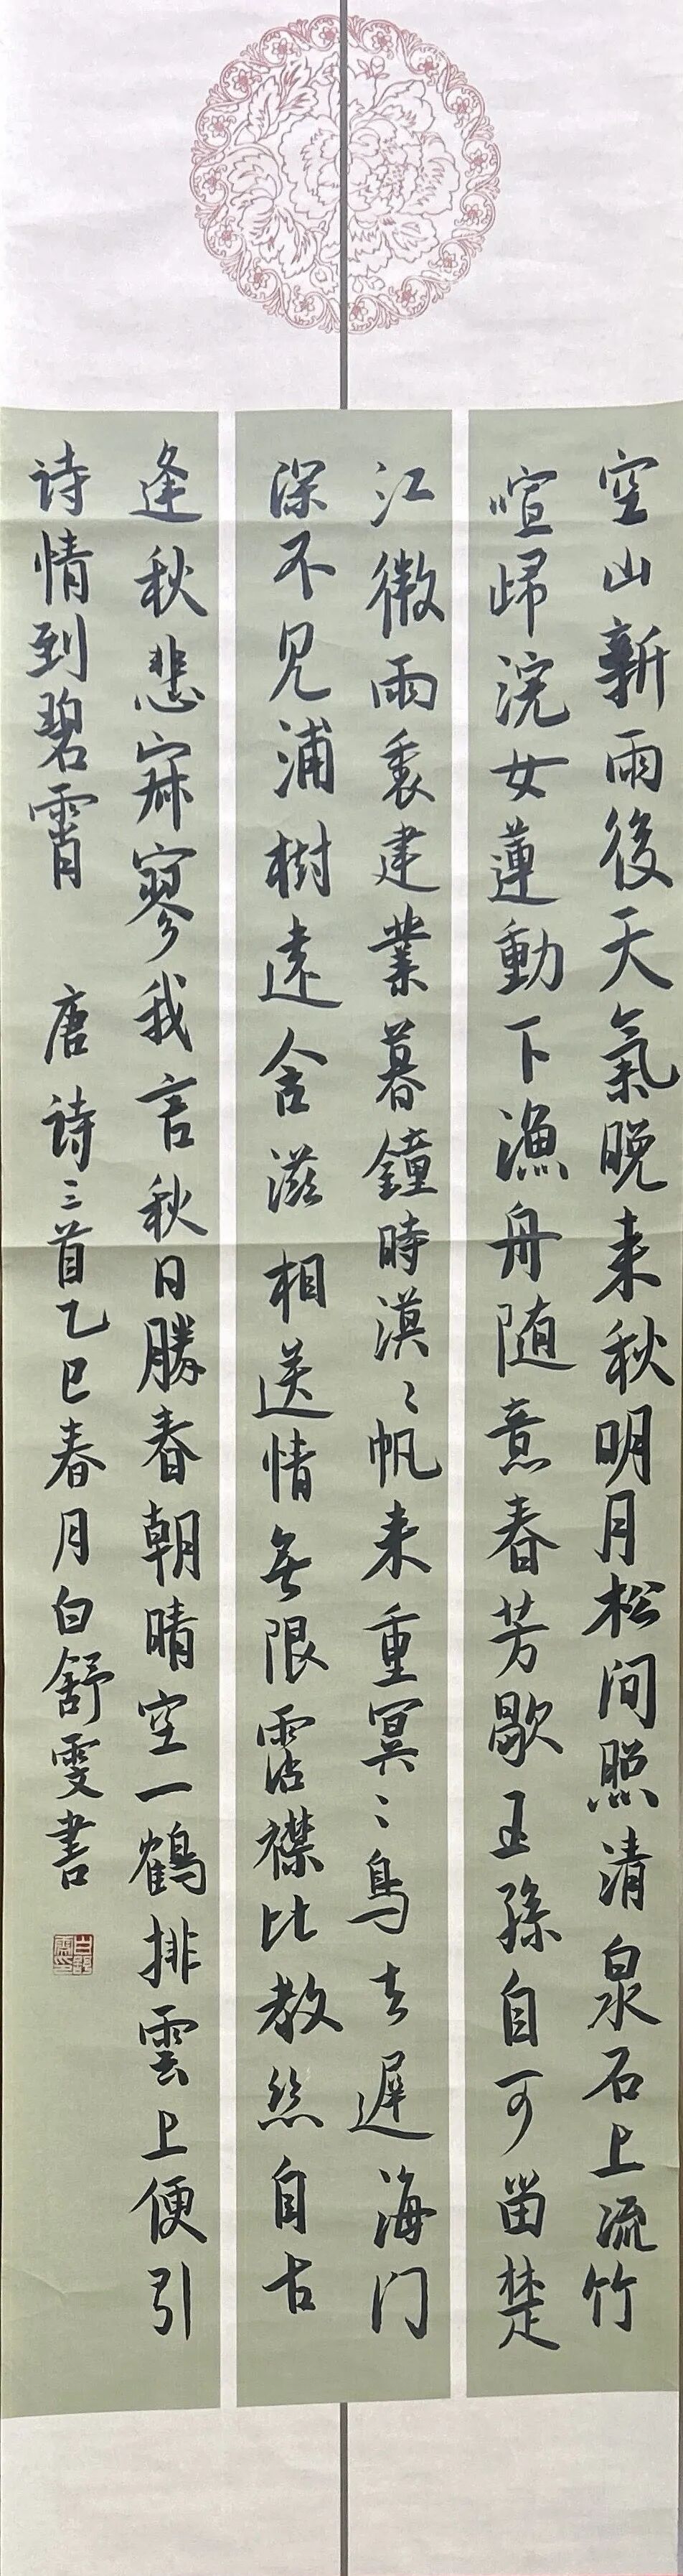 空山新雨後天氣晚来秋明月松间照清泉石上流竹
喧歸浣女蓮動下漁舟随意春芳歇王孫自可留楚
江微雨裏建業暮鐘時漠〻帆来重冥〻鳥去遲海门
深不见浦樹遠含滋相送情無限霑襟比教絲自古
逢秋悲寂寥我言秋日勝春朝晴空一鶴排雲上便引
诗情到碧霄 唐诗三首乙巳春月白舒雯書
白舒雯印